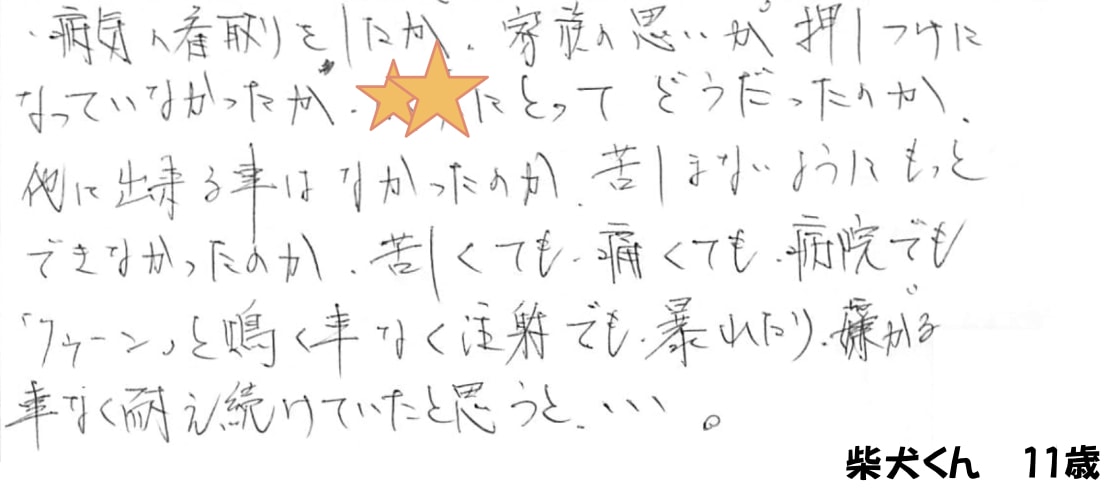 ・病気、看取りをしたが、家族の思いが押しつけに
なっていなかったか。にとってどうだったのか、
他に出来る事はなかったのか、苦しまないようにもっと
できなかったのか、苦しくても、痛くても、病院でも
「クゥーン」と鳴く事なく注射でも、暴れたり、嫌がる
事なく耐え続けていたと思うと、・・・。
柴犬くん　11歳